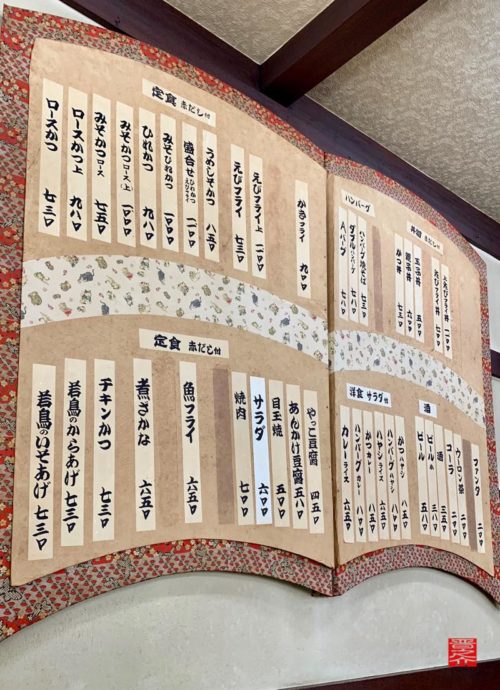 定食 赤だし付
かきフライ 九〇〇
えびフライ上 一一〇〇
えびフライ 七三〇
うめしそかつ 八五〇
盛合せ ひれかつ えびフライ 一一〇〇
みそひれかつ 一〇〇〇
ひれかつ 九八〇
みそかつロース(上) 一〇〇〇
みそかつロース 七五〇
ロースかつ上 九八〇
ロースかつ 七三〇
定食 赤だし付
やっこ豆腐 四五〇
あんかけ豆腐 五八〇
目玉焼 五〇〇
サラダ 六〇〇
焼肉 七〇〇
魚フライ 六五〇
煮ざかな 六五〇
チキンかつ 七三〇
若鳥のからあげ 七三〇
若鳥のいそあげ 七三〇
丼物 赤だし付
上えびフライ丼 一一〇〇
えびフライ丼
玉子丼 五〇〇
親子丼 六〇〇
かつ丼
ハンバーグ
ハンバーグ焼そば 七三〇
ダブルハンバーグ 七八〇
ハンバーグ
酒
ファンタ 二〇〇
ウーロン茶 二〇〇
コーラ 二〇〇
酒
ビール小
ビール
洋食 サラダ付
かつハヤシ 八五〇
ハンバーグハヤシ
ハヤシライス 六五〇
かつカレー 八五〇
ハンバーグカレー 八〇〇
カレーライス 六五〇